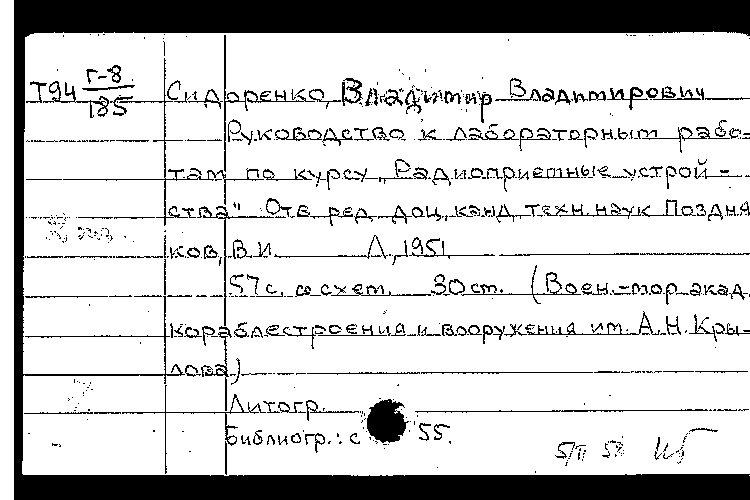 Т94 Г-8/185
Сидоренко, Владимир Владимирович
Руководство к лабораторным рабо-
там по курсу „Радиоприемные устрой-
ства" Отв. ред. доц. канд. техн. наук Поздня
ков, В.И. Л., 1951.
57 с. со схем. 30 см. (Воен.-мор. акад.
кораблестроения и вооружения им. А.Н. Кры-
лова)
Литогр.
Библиогр.: с 55.
5/II 52